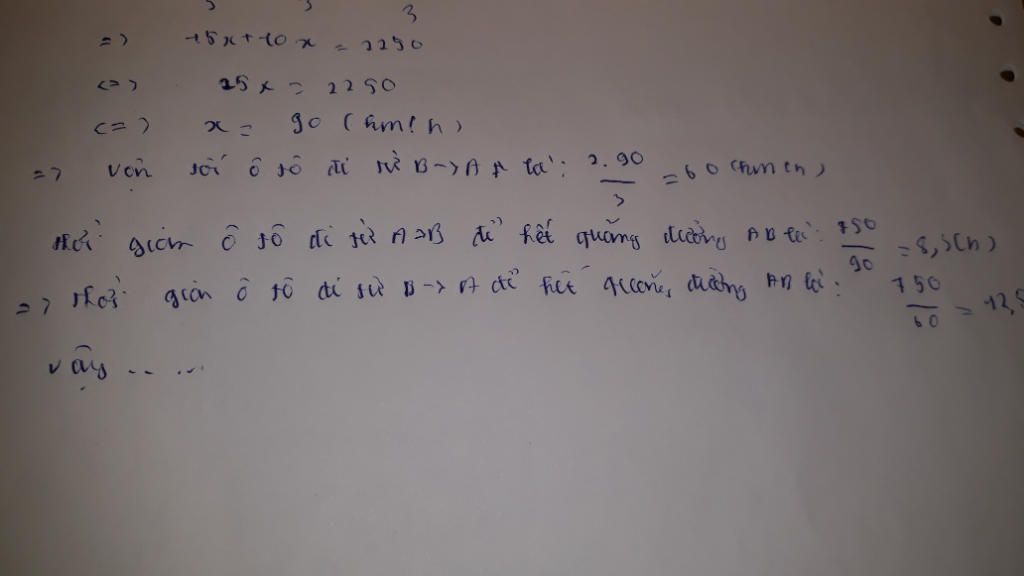 3
=> 15x + 10x = 2250
<=> 25x = 2250
<=> x = 90 (km/h)
=> vận tốc ô tô đi từ B -> A là: 2.90/3 = 60 (km/h)
thời gian ô tô đi từ A -> B để hết quãng đường AB là: 750/90 = 8,3(h)
=> thời gian ô tô đi từ B -> A để hết quãng đường AB là: 750/60 = 12,5
vậy .. ...